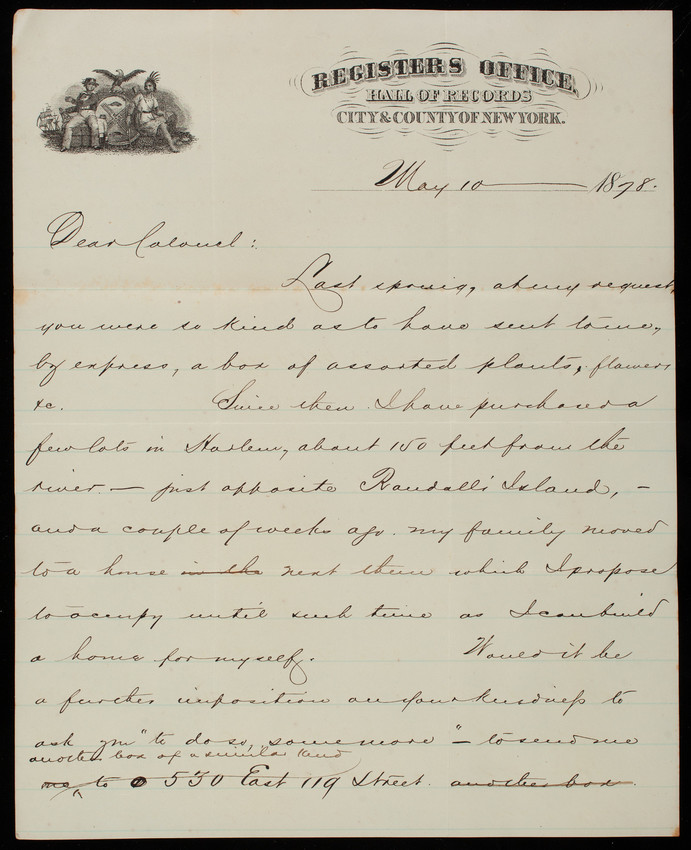 REGISTERS OFFICE,
HALL OF RECORDS
CITY & COUNTY OF NEW YORK.
May 10 — 1878.
Dear Colonel:
Last spring, at my request,
you were so kind as to have sent to me,
by express, a box of assorted plants, flowers
&c. Since then I have purchased a
few lots in Harlem, about 150 feet from the
river — just opposite Randall's Island, —
and a couple of weeks ago my family moved
to a house in the next them which I propose
to occupy until such time as I can build
a home for myself. Would it be
a further imposition on your kindness to
ask you "to do so, some more" — to send me
another box of a similar kind
me, to 530 East 119 Street. another box.